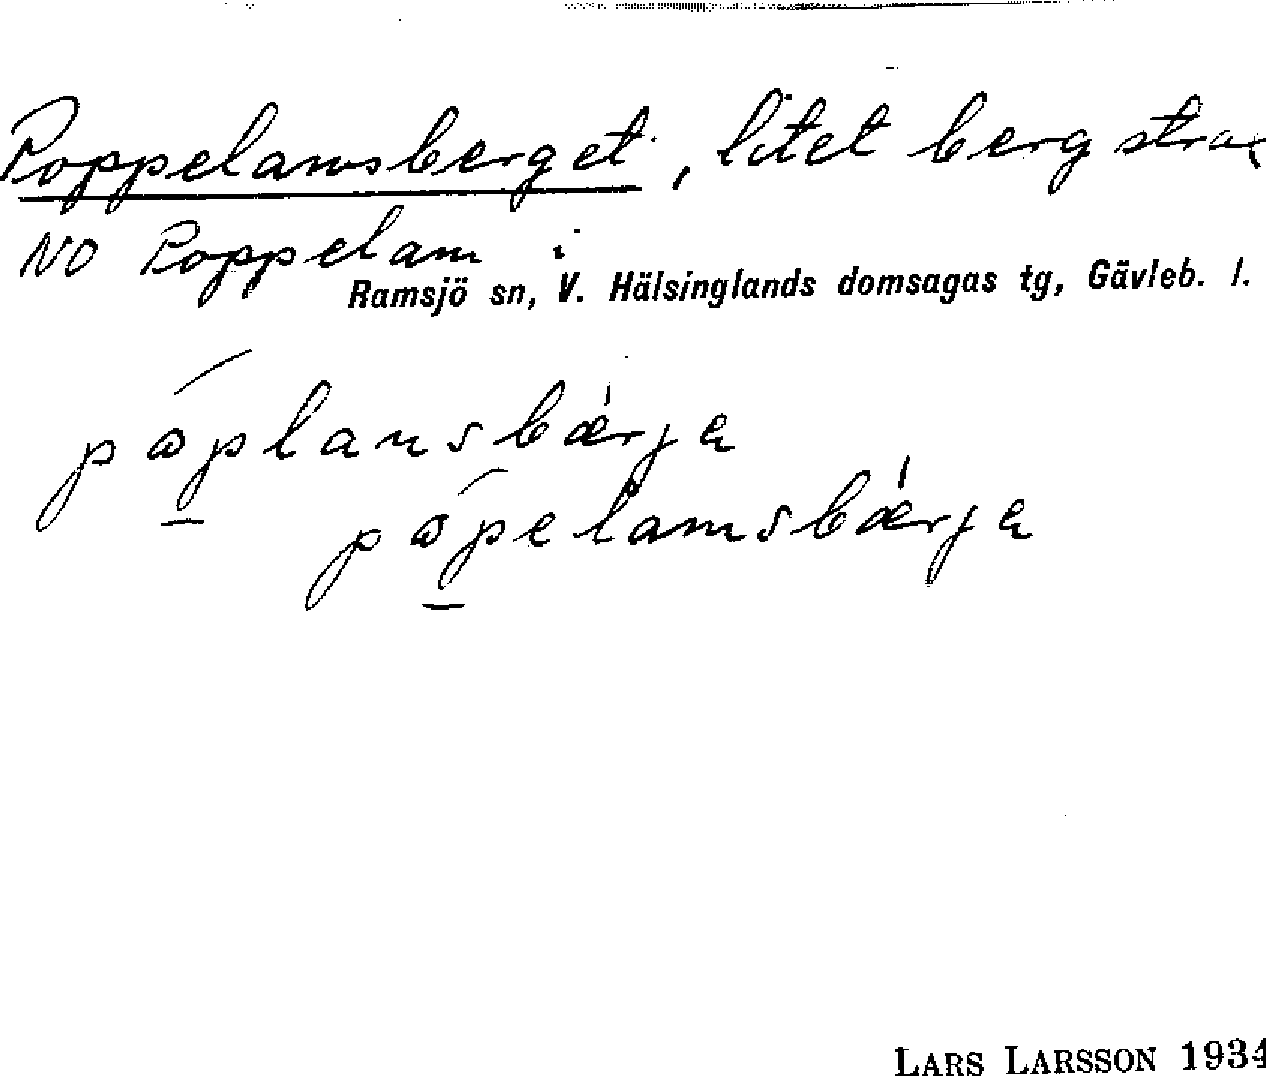 Poppelamsberget, litet berg strax
NO Poppelam i
Ramsjö sn, V. Hälsinglands domsagas tg, Gävleb. l.
pòplansbǽrjɛ
pòpelamsbǽrjɛ
LARS LARSSON 1934